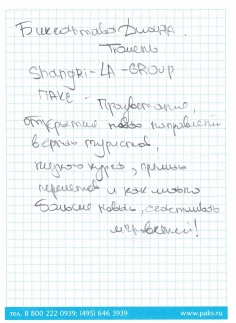 Биксентаева Диана.
Тюмень
Shangri-LA-GROUP
ПАКС - Процветания,
открытия новых направлений
верных туристов,
низкого курса, прямых
перелетов и как можно
больше новых, счастливых
мгновений!
тел. 8 800 222 0939; (495) 646 3939 www.paks.ru